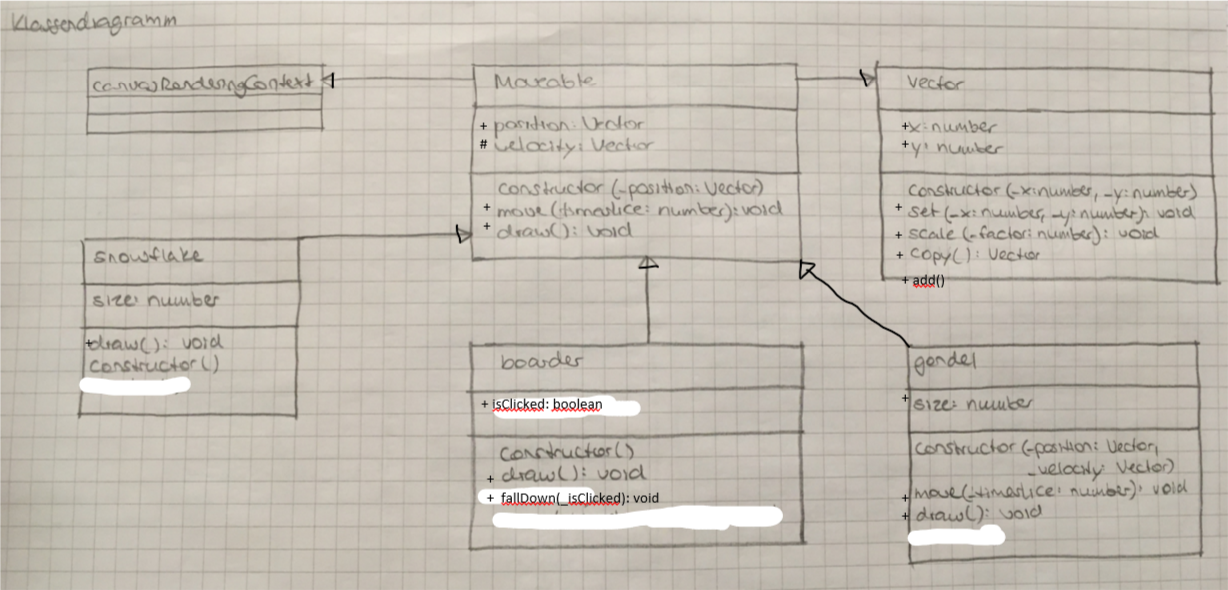 Klassendiagramm
canvasRenderingContext
Moveable
+ position: Vector
# velocity: Vector
constructor(_position: Vector)
+ move(_timeslice: number): void
+ draw(): void
Vector
+x: number
+y: number
constructor(_x: number, _y: number)
+ set(_x: number, _y: number): void
+ scale(_factor: number): void
+ copy(): Vector
+ add()
snowflake
size: number
+draw(): void
constructor()
boarder
+ isClicked: boolean
constructor()
+ draw(): void
+ fallDown(_isClicked): void
gondel
+ size: number
constructor(_position: Vector,
_velocity: Vector)
+ move(_timeslice: number): void
+ draw(): void